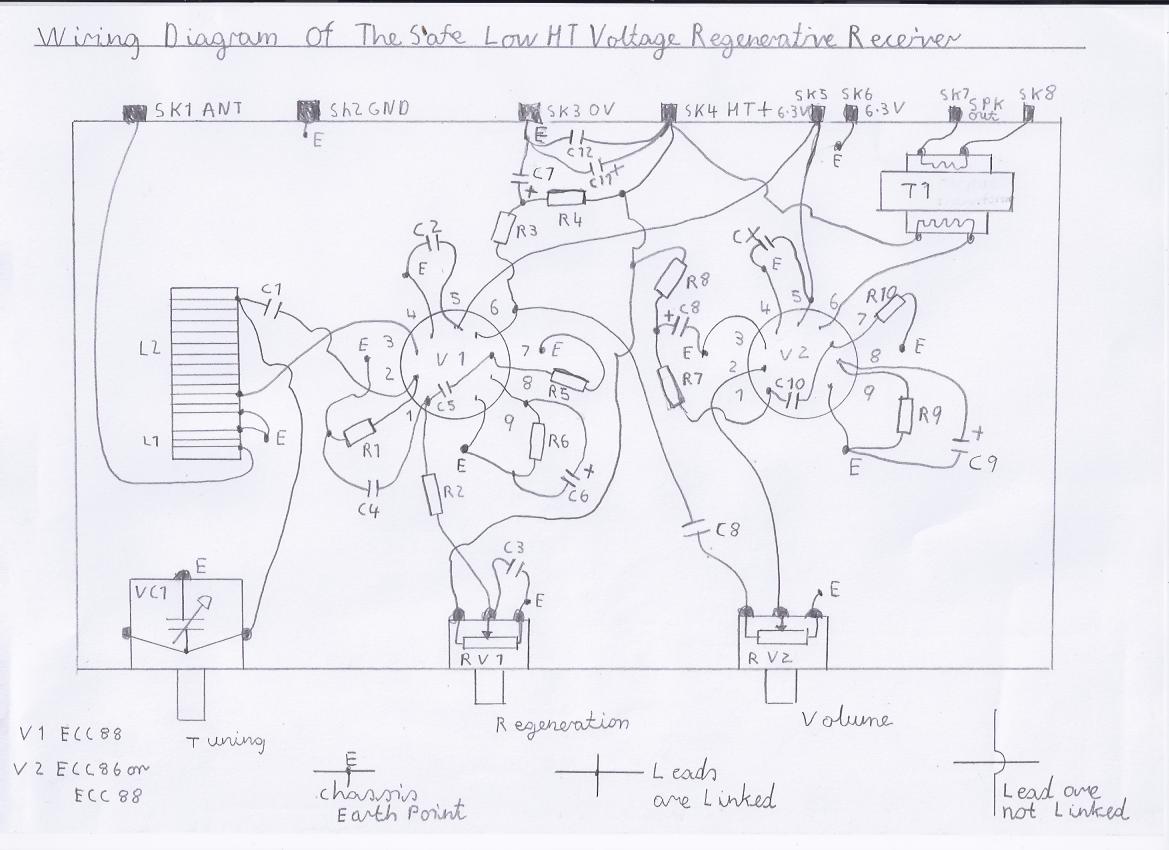 Wiring Diagram Of The Safe Low HT Voltage Regenerative Receiver
SK1 ANT
Sh2 GND
SK3 0V
SK4 HT+
SK5
6.3V
SK6
6.3V
SK7
SPK
out
SK8
E
E
C12
C11
+
C7
+
R4
R3
E
T1
C2
E
CX
E
R8
+
C8
E
R7
R10
E
C1
L2
L1
E
E
4
5
6
3
2
1
V 1
7
8
9
E
C5
R5
R1
C4
R2
R6
E
+
C6
4
5
6
7
3
2
1
V 2
8
9
C10
R9
E
+
C9
C8
C3
E
E
E
VC1
R V 1
R V2
Tuning
Regeneration
Volume
V1 ECC88
V2 ECC86 or
ECC 88
E
chassis
Earth Point
Leads
are Linked
Lead are
not Linked